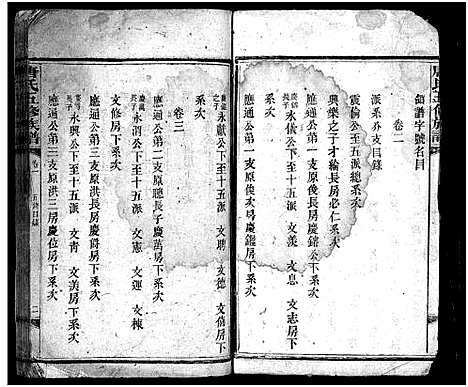 唐氏五修族譜
領譜字號名目
卷二
派系分支目錄
震倫公至五派總系次
興樂之子才綸長房必仁系次
應通公第一支原俊長房慶鍇公下系次
永儀公下至十五派 文漢 文息 文志房下
系次
應通公第一支原俊次房慶鑑房下系次
慶鍇之子 永獻公下至十五派 文聘 文德 文
系次
卷三
應通公第二支原聰長子慶萬房下系次
慶萬長子 永泗公下至十五派 文憲 文運 文棟
文修房下系次
應通公第三支原洪長房慶爵房下系次
長子 永興公下至十五派 文青 文美房下系次
應通公第三支原洪三房慶位房下系次
唐氏五修族譜 卷一 五總目錄 二